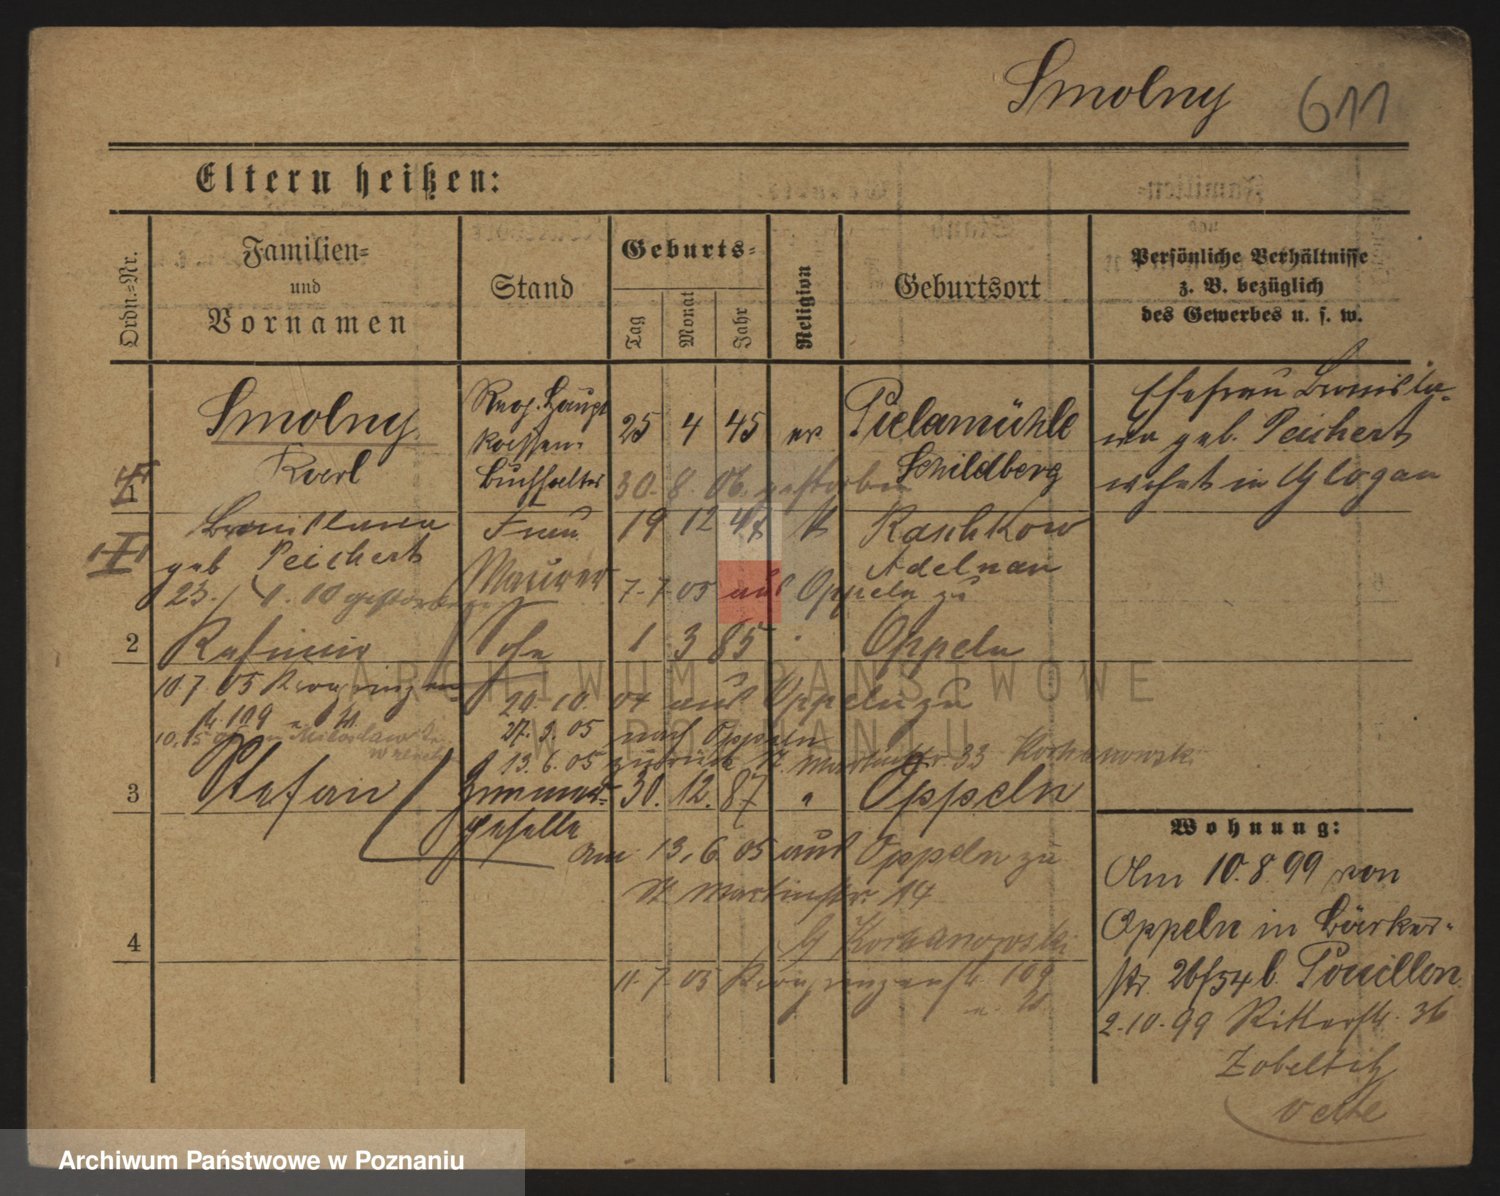 Smolny 611
Eltern heißen:
Ordn.-Nr.
Familien-
und
Vornamen
Stand
Geburts-
Tag
Monat
Jahr
Religion
Geburtsort
Persönliche Verhältnisse
z. B. bezüglich
des Gewerbes u. s. w.
Smolny
Karl
Reg. Haupt
Kassen-
Buchhalter
25 4 45 ev Pielamühle
Schildberg
30. 8. 06. gestorben
Ehefrau Bronisla-
wa geb. Peichert
wohnt in Glogau
Bronislawa
geb Peichert
Frau
19 12 47 k Raschkow
Adelnau
23. 1. 10 gestorben
Maurer
7. 7. 05 aus Oppeln zu
2
Kasimir
Sohn
1 3 85 Oppeln
10.7. 05 Kronprinzen-
str 109
20. 10. 04 aus Oppeln zu
27. 3. 05 nach Oppeln
13. 6. 05 zurück St. Martinstr. 33 Kochanowski
3
Stefan
Zimmer-
geselle
30. 12. 87 " Oppeln
am 13. 6 05 aus Oppeln zu
St Martinstr. 14
b Kochanowski
11. 7. 05 Kronprinzenstr. 109
4
Wohnung:
Am 10. 8. 99 von
Oppeln in Bäcker-
str. 26/34 b. Pouillon
2. 10. 99 Ritterstr. 36
Zobeltitz
ARCHIWUM PAŃSTWOWE
W POZNANIU
Archiwum Państwowe w Poznaniu